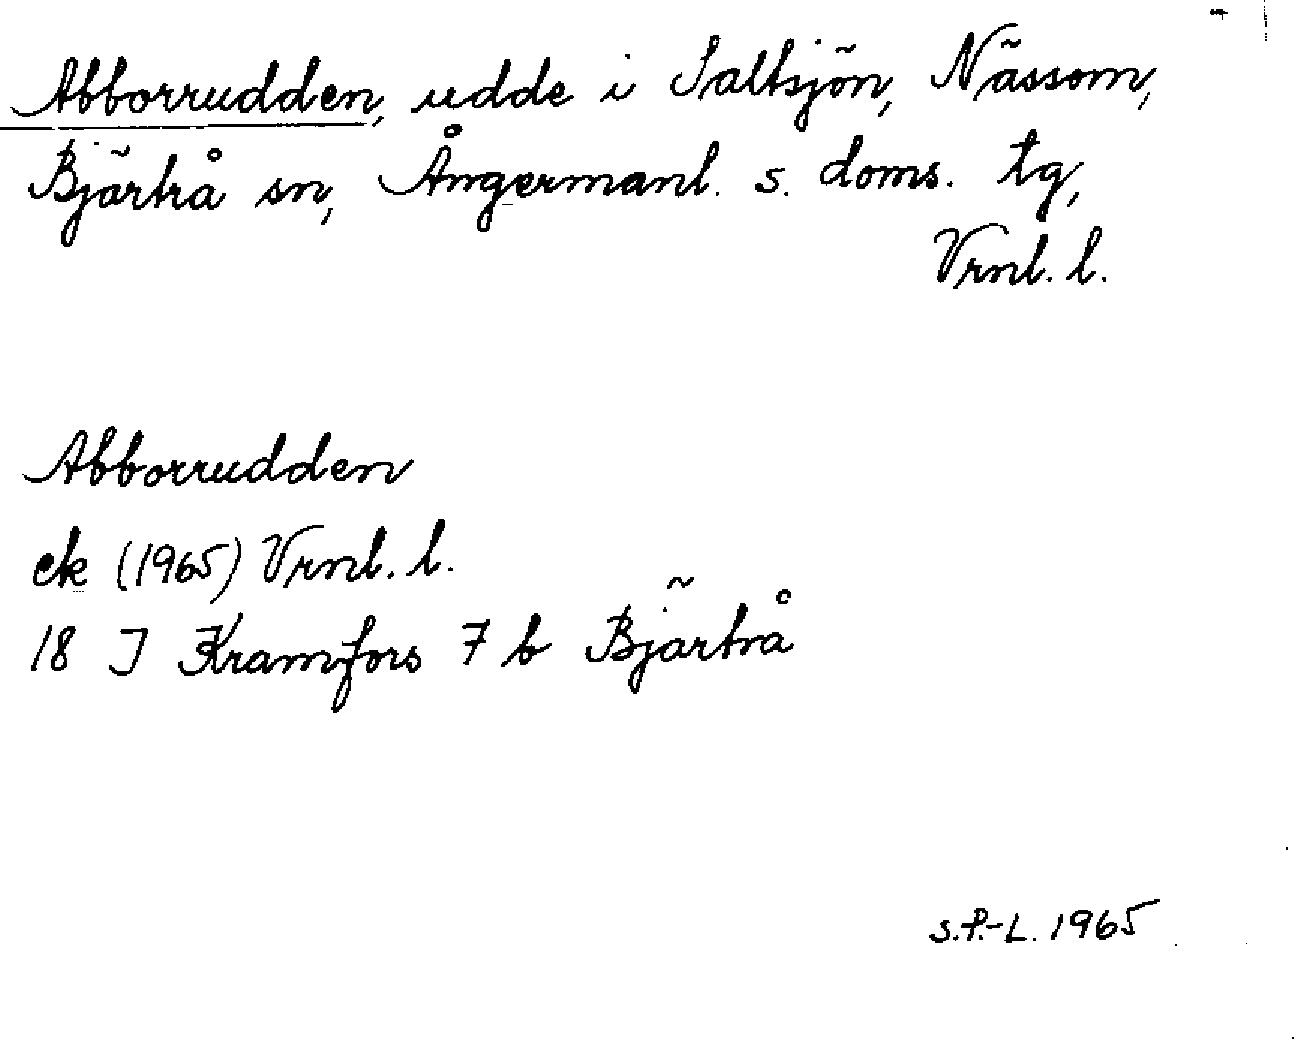 Abborrudden, udde i Saltsjön, Nässom,
Bjärtrå sn, Ångermanl. s. doms. tg,
Vrnl. l.
Abborrudden
ek (1965) Vrnl. l.
18 J Kramfors 7 b Bjärtrå
S.P.-L. 1965